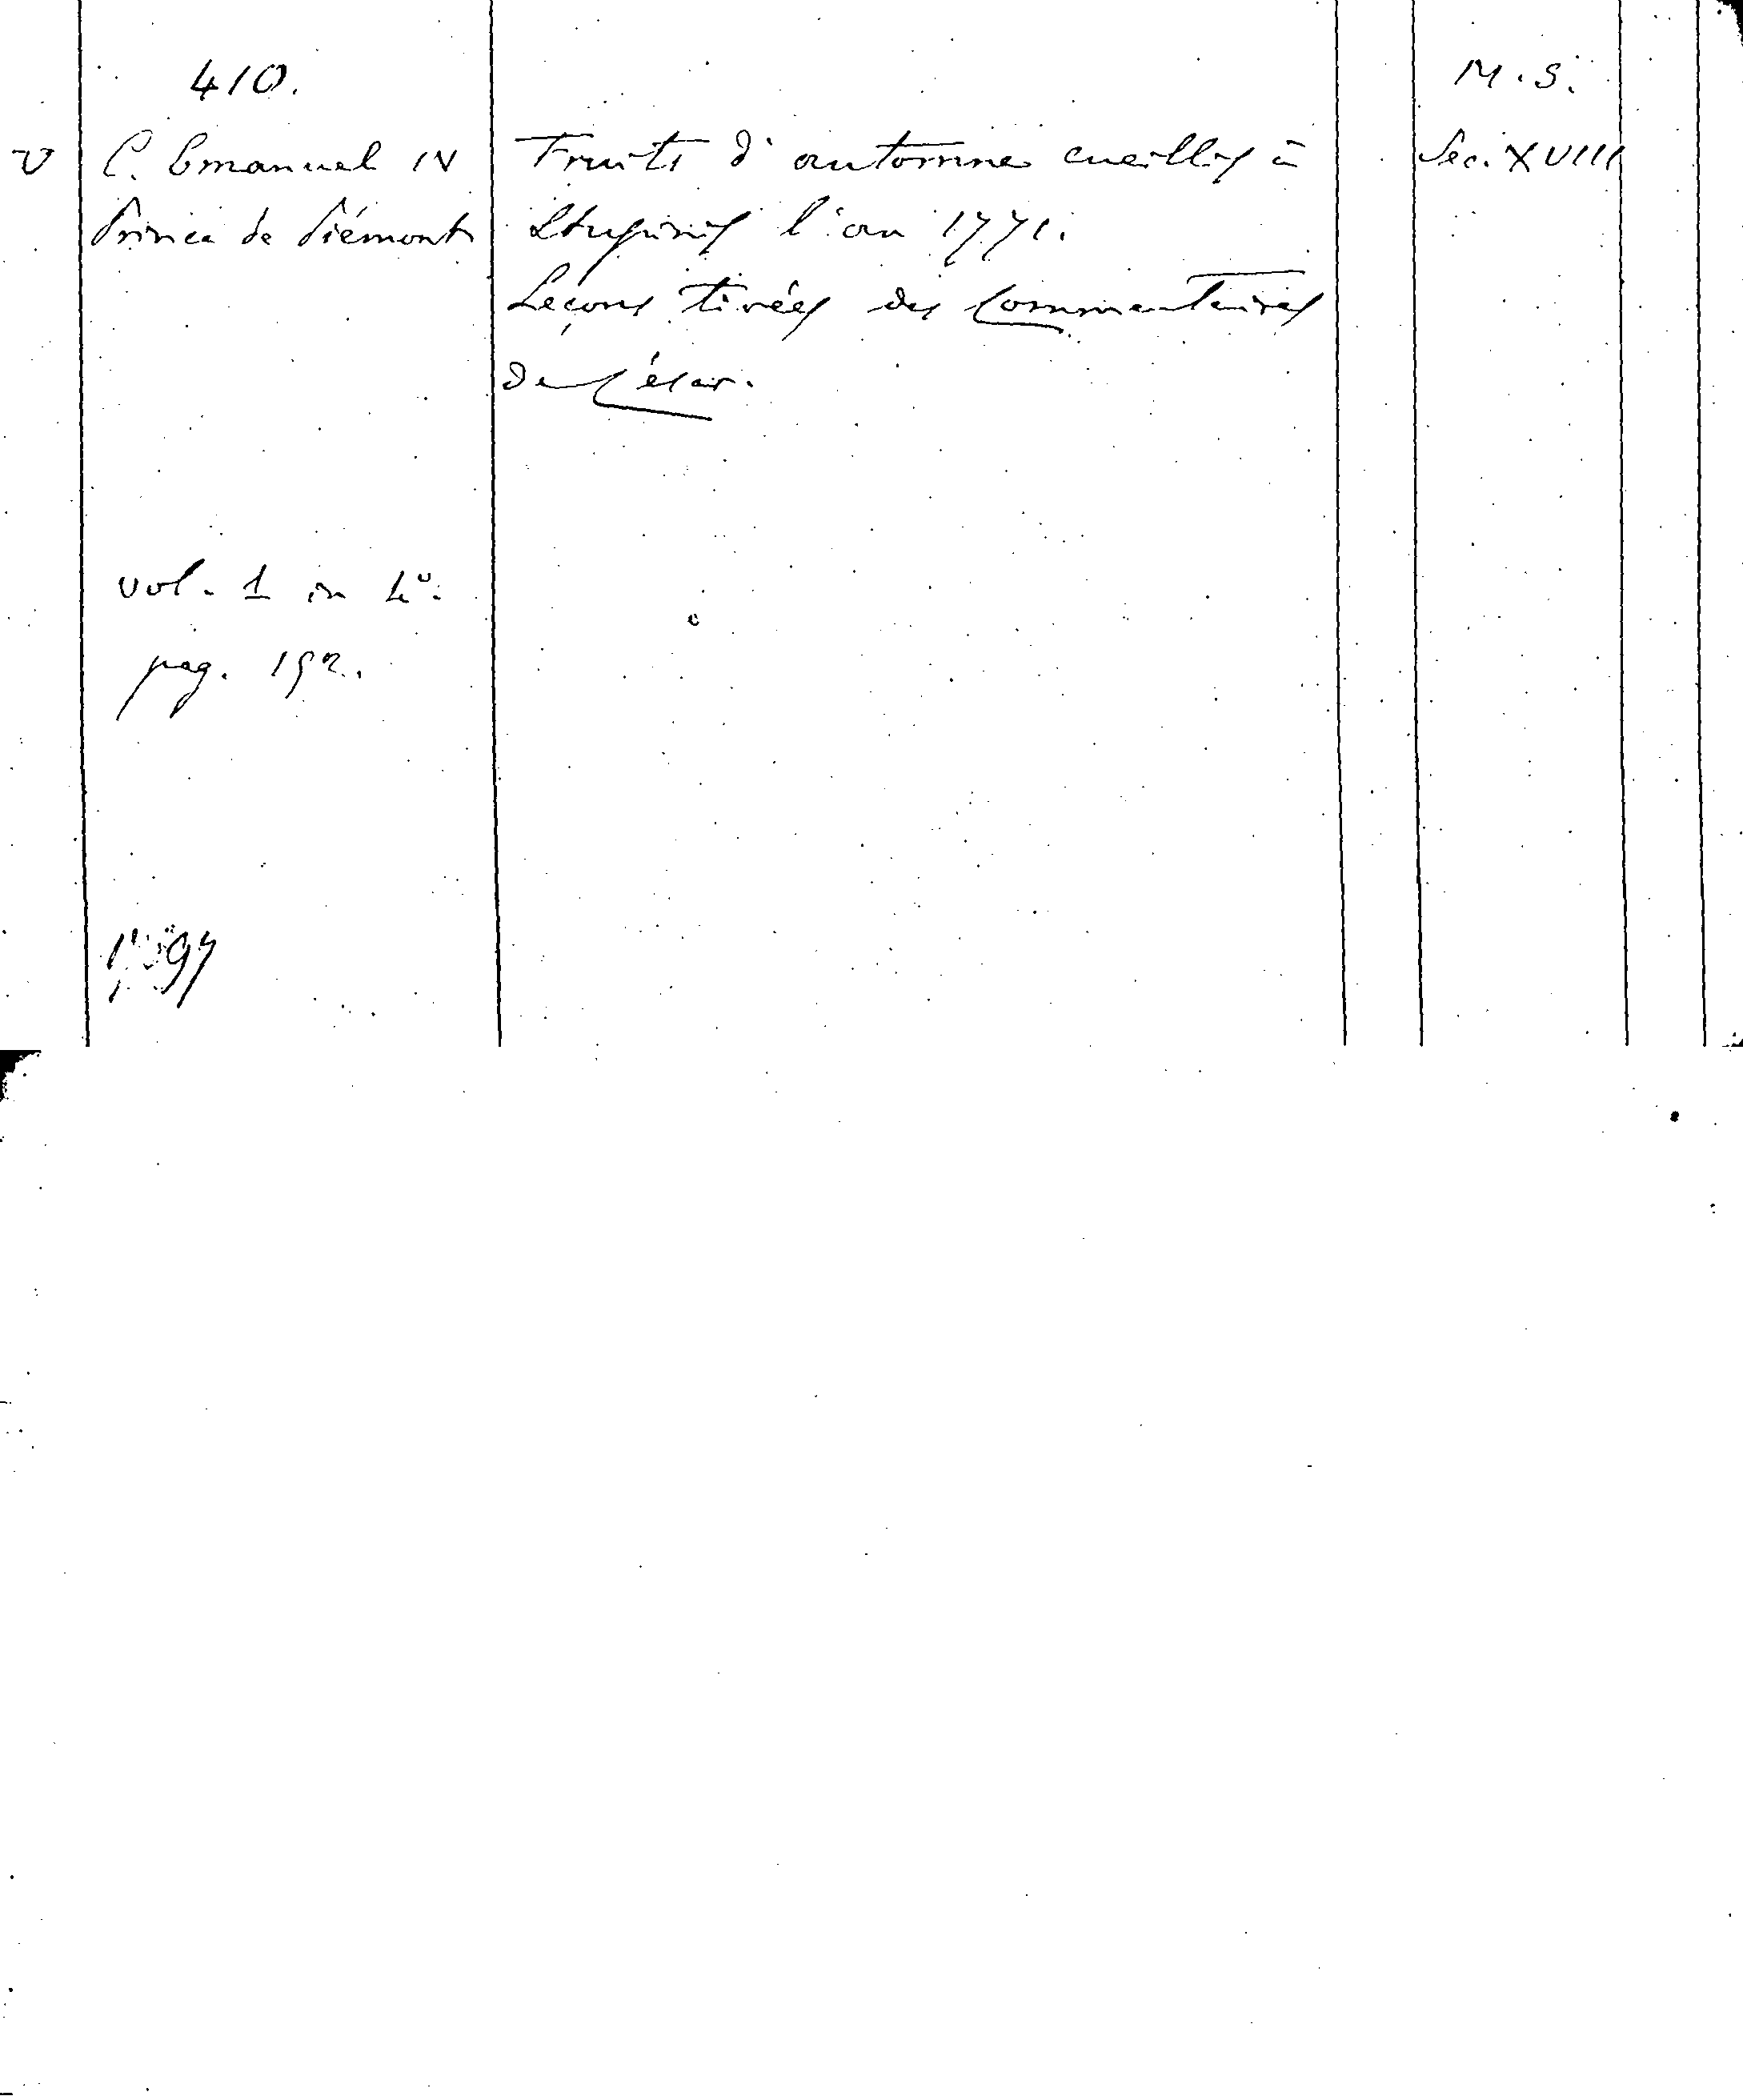 410.
M.S.
V C. Emanuel IV Fruits d'automne cueillis à Sec. XVIII
Prince de Piémont Stupinis l'an 1771.
Leçons tirées des Commentaires
de César.
vol. 1 in 4°.
pag. 192.